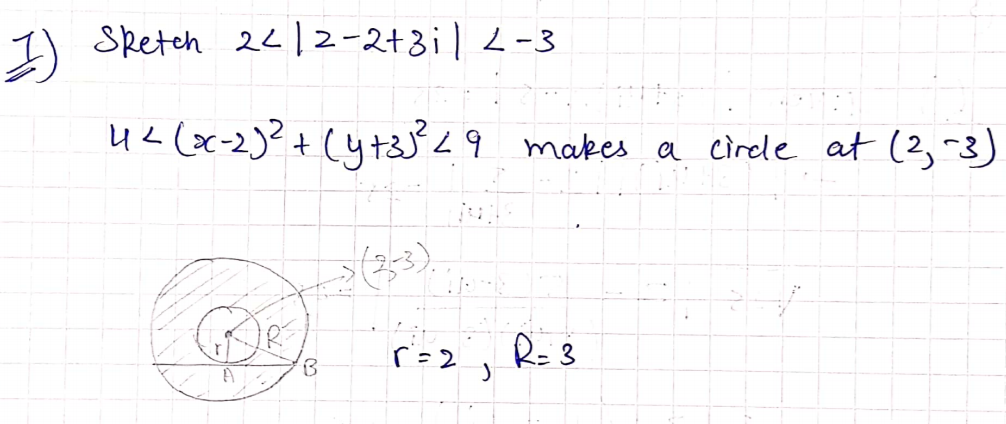 1) Sketch 2<|z-2+3i| <-3
4<(x-2)²+(y+3)²<9 makes a circle at (2,-3)
(2,-3)
r R
A B
r=2, R=3